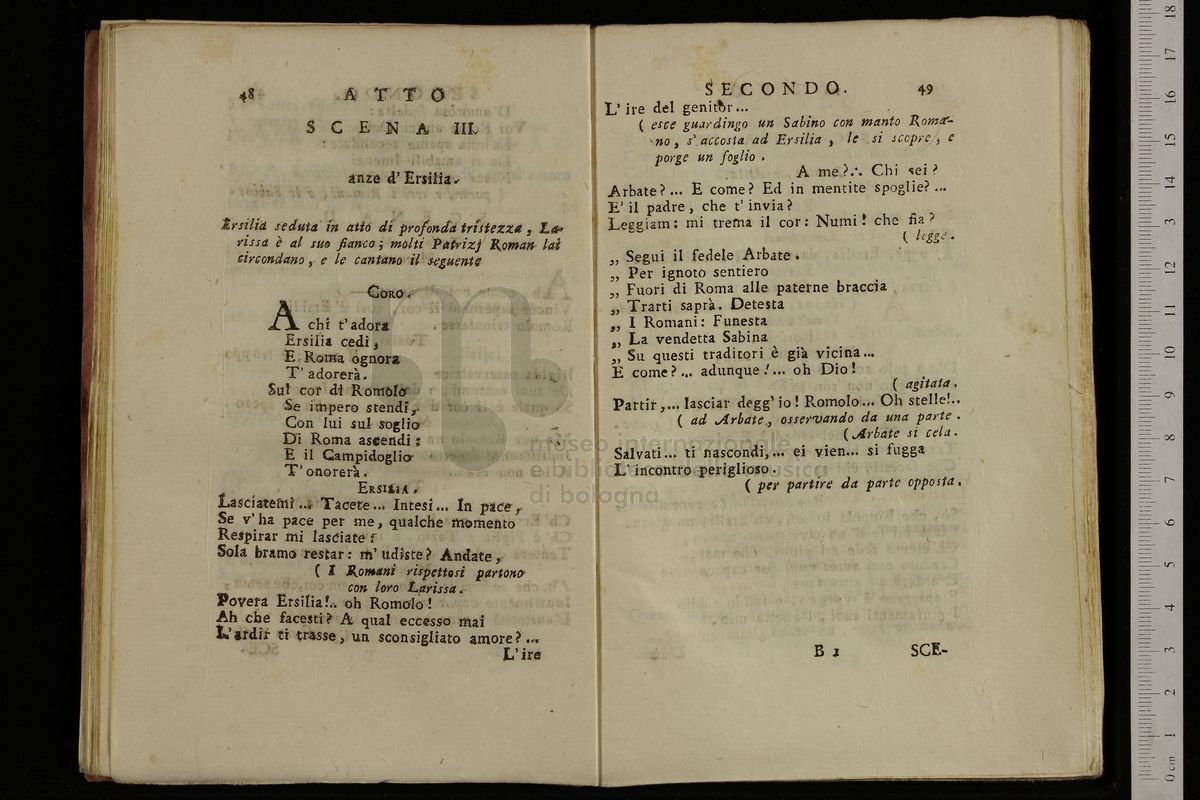 48 ATTO
SCENA III.
anze d' Ersilia.
Ersilia seduta in atto di profonda tristezza, La-
rissa è al suo fianco; molti Patrizj Roman lai
circondano, e le cantano il seguente
CORO.
A chi t'adora
Ersilia cedi,
E Roma ognora
T' adorerà.
Sul cor di Romolo
Se impero stendi,
Con lui sul soglio
Di Roma ascendi:
E il Campidoglio
T' onorerà.
ERSILIA.
Lasciatemi... Tacete... Intesi... In pace,
Se v' ha pace per me, qualche momento
Respirar mi lasciate:
Sola bramo restar: m' udiste? Andate,
( I Romani rispettosi partono
con loro Larissa.
Povera Ersilia!.. oh Romolo!
Ah che facesti? A qual eccesso mai
L'ardir ti trasse, un sconsigliato amore?...
L' ire
SECONDO. 49
L' ire del genitor...
( esce guardingo un Sabino con manto Roma-
no, s' accosta ad Ersilia, le si scopre, e
porge un foglio.
A me?.. Chi sei?
Arbate?... E come? Ed in mentite spoglie?...
E' il padre, che t' invia?
Leggiam: mi trema il cor: Numi! che fia?
( legge.
„ Segui il fedele Arbate.
„ Per ignoto sentiero
„ Fuori di Roma alle paterne braccia
„ Trarti saprà. Detesta
„ I Romani: Funesta
„ La vendetta Sabina
„ Su questi traditori è già vicina...
E come?... adunque!... oh Dio!
( agitata.
Partir,... lasciar degg' io! Romolo... Oh stelle!..
( ad Arbate, osservando da una parte.
(Arbate si cela.
Salvati... ti nascondi,... ei vien... si fugga
L' incontro periglioso.
( per partire da parte opposta.
B 1 SCE-
museo internazionale
e biblioteca della musica
di bologna
0 cm 1 2 3 4 5 6 7 8 9 10 11 12 13 14 15 16 17 18